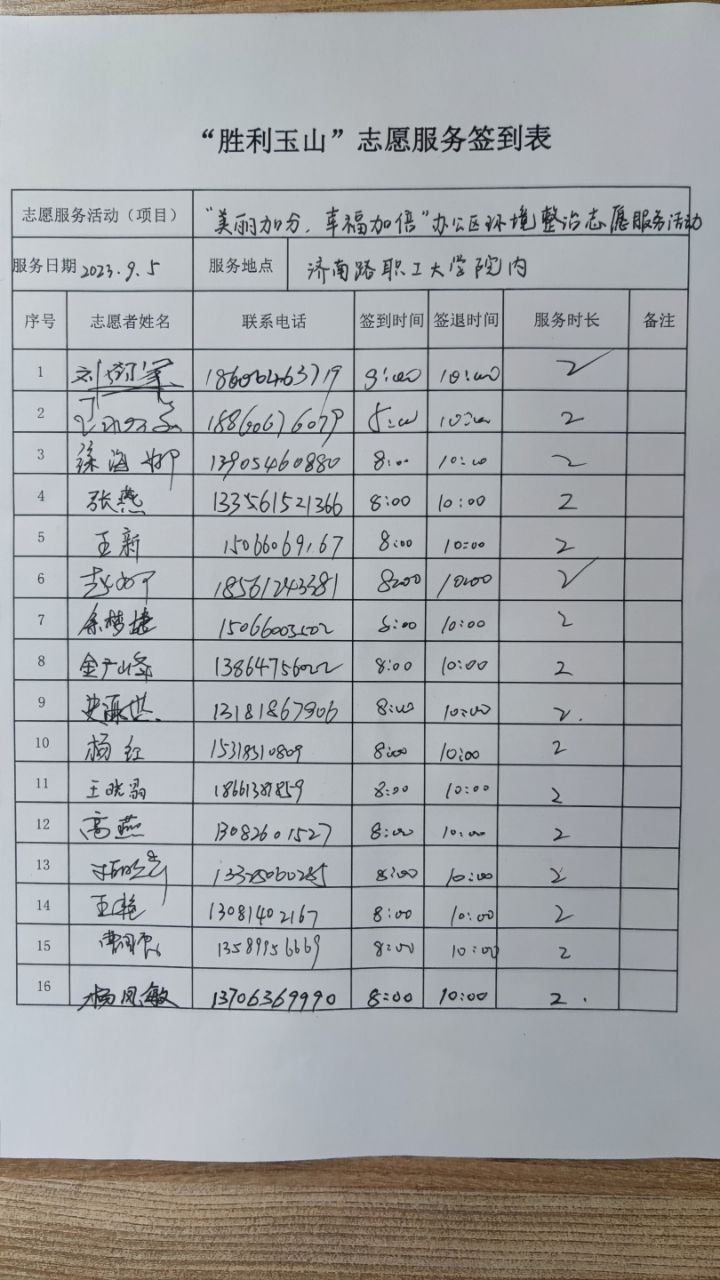 “胜利玉山”志愿服务签到表
志愿服务活动（项目） “美丽加分，幸福加倍”办公区环境整治志愿服务活动
服务日期 2023.9.5 服务地点 济南路职工大学院内
序号 志愿者姓名 联系电话 签到时间 签退时间 服务时长 备注
1 18606463719 10:00 2
2 18860676079 10:00 2
3 徐海柳 13905460880 8:00 10:00 2
4 张燕 133561521366 8:00 10:00 2
5 王新 8:00 10:00 2
6 18561243381 8:00 10:00 2
7 余梦捷 15066003502 8:00 10:00 2
8 金广峰 13864756022 8:00 10:00 2
9 13181867906 8:00 10:00 2.
10 杨红 15318310809 8:00 10:00 2
11 18661381859 8:00 10:00 2
12 高燕 13082601527 8:00 10:00 2
13 8:00 10:00 2
14 王艳 13081402167 8:00 10:00 2
15 13589956669 8:00 10:00 2
16 杨凤敏 13706369990 8:00 10:00 2.